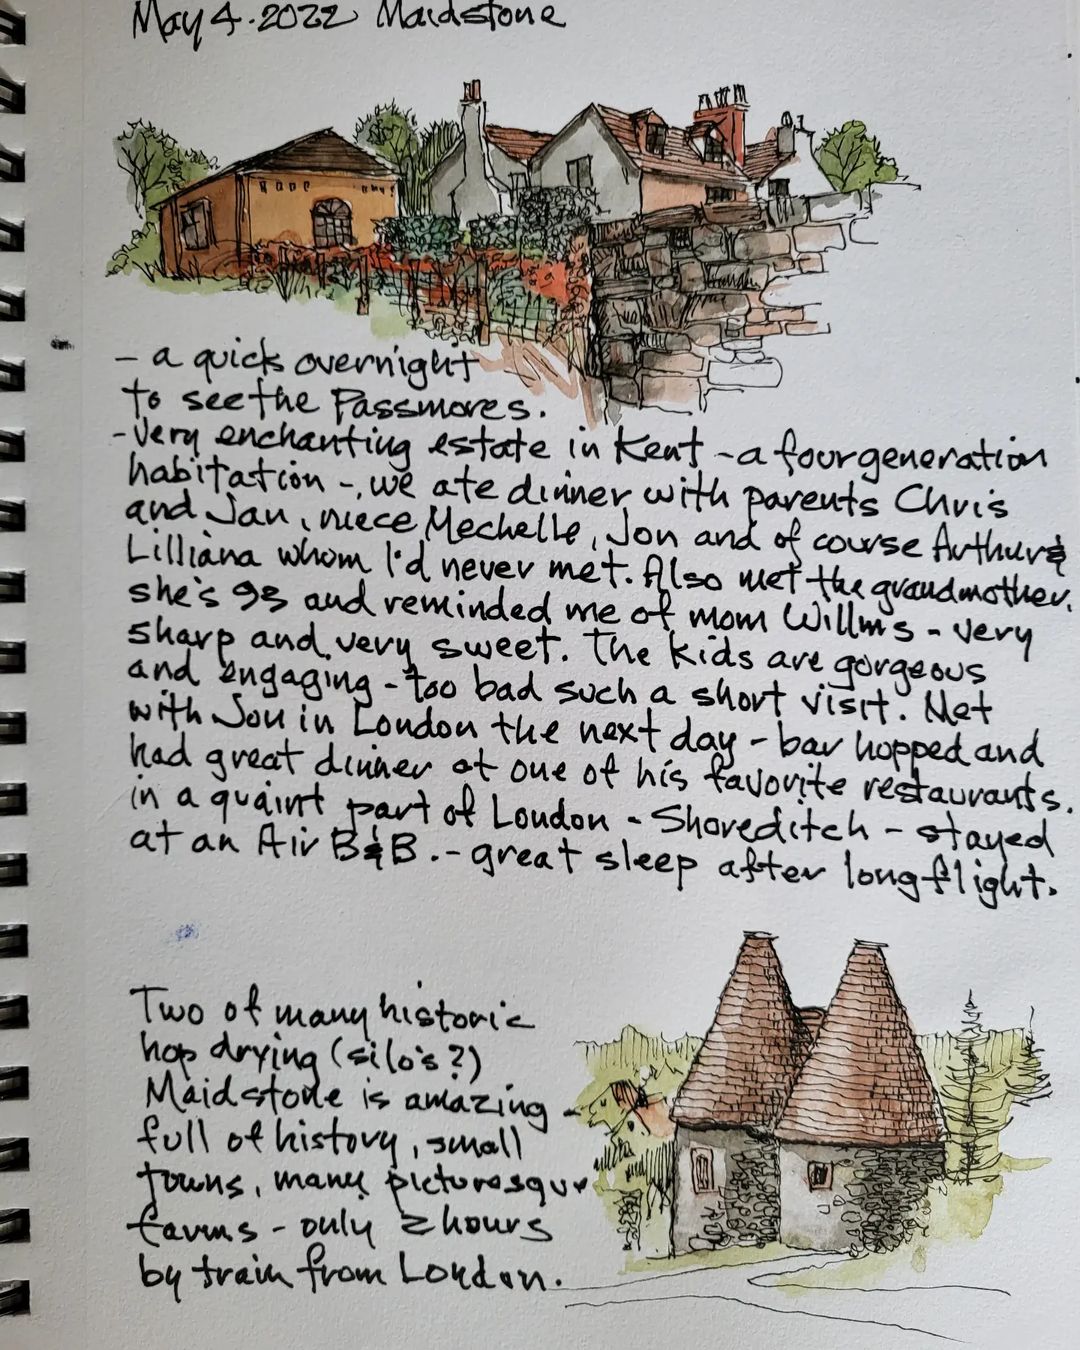 May 4. 2022 Maidstone
- a quick overnight
to see the Passmores.
- Very enchanting estate in Kent - a four generation
habitation -, we ate dinner with parents Chris
and Jan, niece Mechelle, Jon and of course Arthur &
Lilliana whom I'd never met. Also met the grandmother.
she's 93 and reminded me of mom Willms - very
sharp and very sweet. The kids are gorgeous
and engaging - too bad such a short visit. Met
with Jon in London the next day - bar hopped and
had great dinner at one of his favorite restaurants.
in a quaint part of London - Shoreditch - stayed
at an Air B&B. - great sleep after long flight.
Two of many historic
hop drying (silo's?)
Maidstone is amazing -
full of history, small
towns, many picturesque
farms - only 2 hours
by train from London.